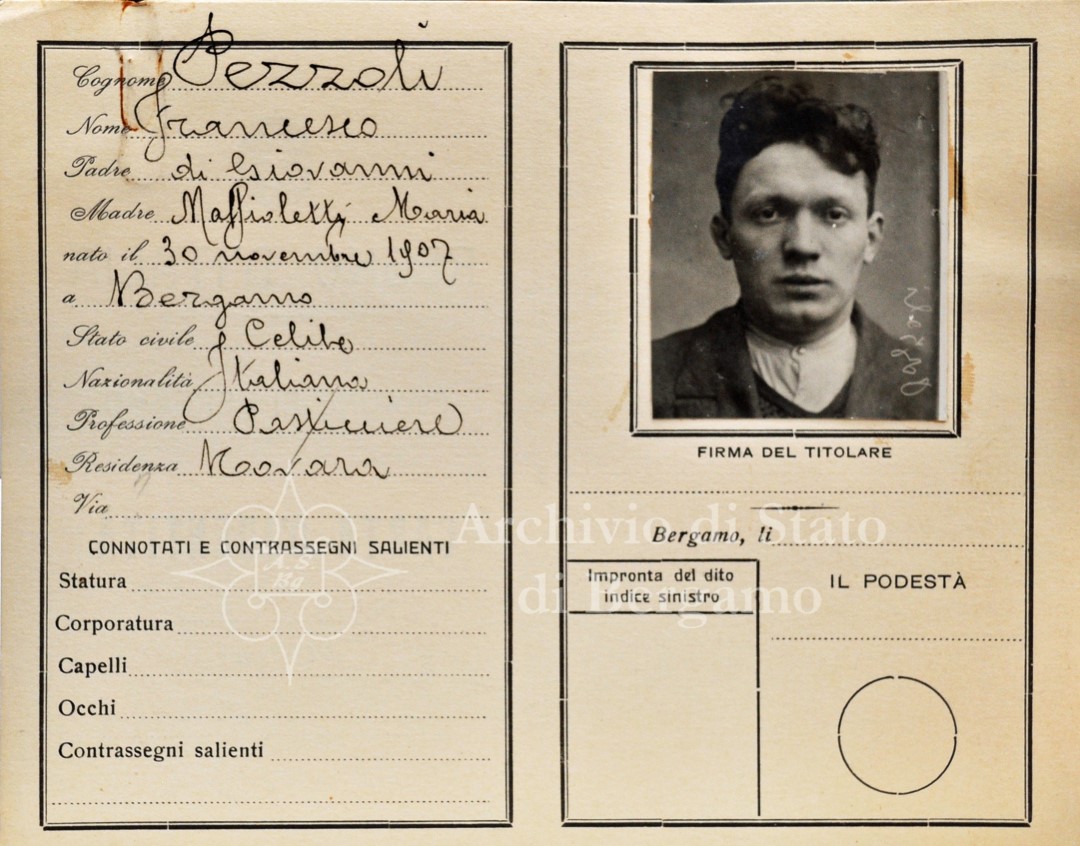 Cognome Pezzoli
Nome Francesco
Padre di Giovanni
Madre Maffioletti Maria
nato il 30 novembre 1907
a Bergamo
Stato civile Celibe
Nazionalità Italiana
Professione Pasticciere
Residenza Novara
Via
CONNOTATI E CONTRASSEGNI SALIENTI
Statura
Corporatura
Capelli
Occhi
Contrassegni salienti
A. S.
Bg
Pezzoli
FIRMA DEL TITOLARE
Archivio di Stato
di Bergamo
Bergamo, li
Impronta del dito
indice sinistro
IL PODESTÀ